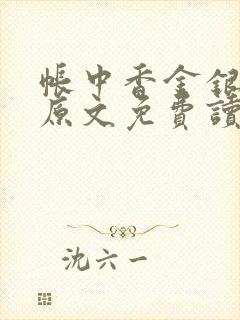 帳中香金銀
原文免費讀
沈六一